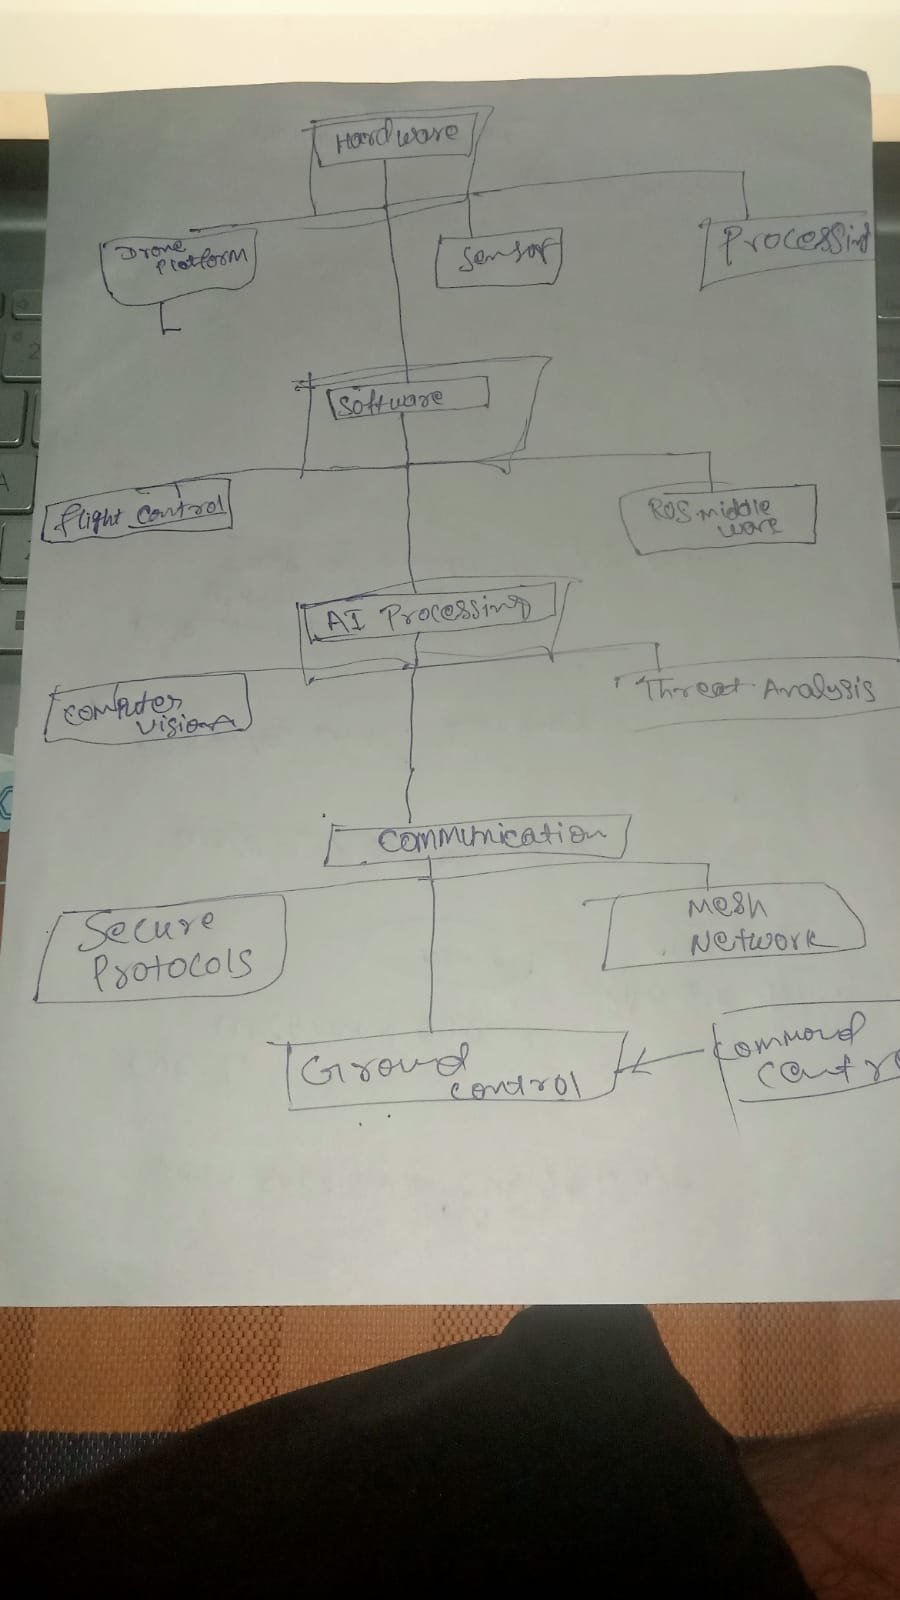 Hardware
Drone
Platform
Sensor
Processing
Software
flight control
ROS middle
ware
AI Processing
Computer
vision
Threat Analysis
Communication
Secure
Protocols
Mesh
Network
Ground
control